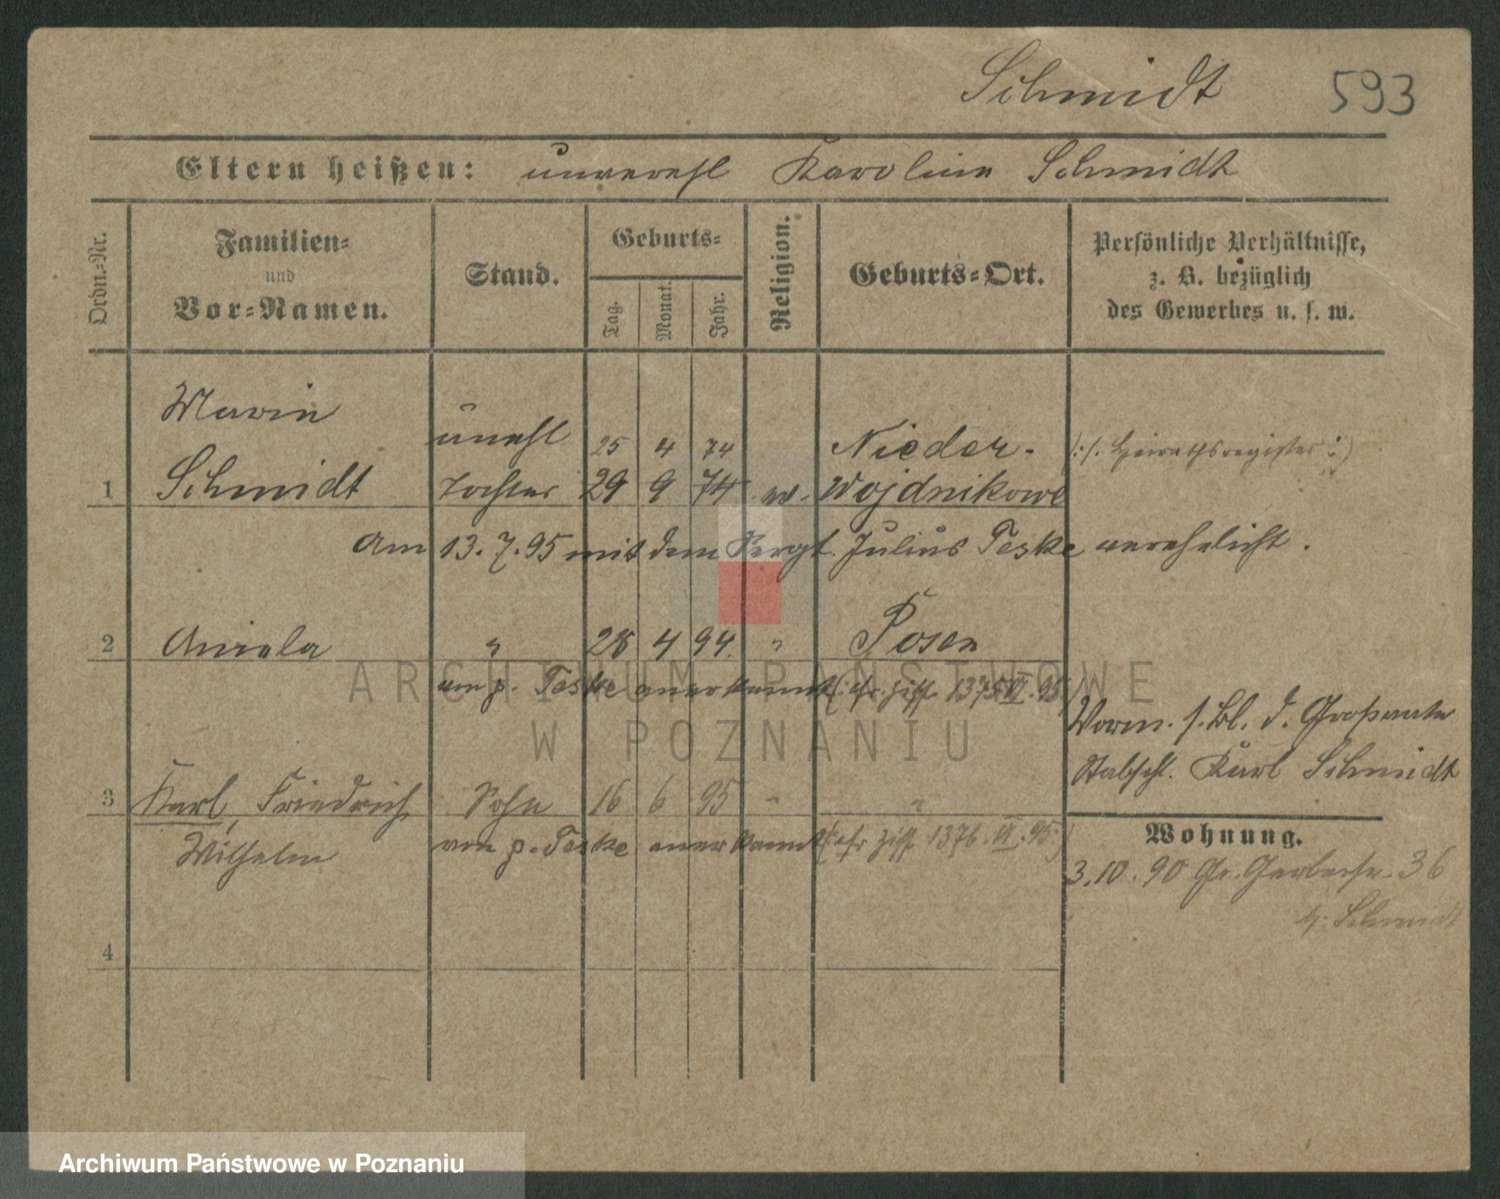 Schmidt 593
Eltern heißen: unverehl Karoline Schmidt
Ordn.-Nr. Familien- und Vor-Namen. Stand. Geburts- Tag. Monat. Jahr. Religion. Geburts-Ort. Persönliche Verhältnisse, z. B. bezüglich des Gewerbes u. s. w.
Marie unehl 25 4 74 Nieder- (:s. Heirathsregister:)
1 Schmidt Tochter 29 9 74 ev. Wojdnikowe
Am 13. 7. 95 mit dem Julius Teske verehelicht.
2 Aniela " 28 4 94. " Posen
von p. Teske anerkannt (cfr. Ziff. 1375 VI. 95)
Vorm. s. Bl. d. Großvater
Karl Schmidt
3 Karl, Friedrich Sohn 16 6 95 " "
Wilhelm von p. Teske anerkannt (cfr Ziff 1376. VI. 95)
Wohnung.
3. 10. 90 Gr. Gerberstr. 36
b. Schmidt
4
ARCHIWUM PAŃSTWOWE
W POZNANIU
Archiwum Państwowe w Poznaniu